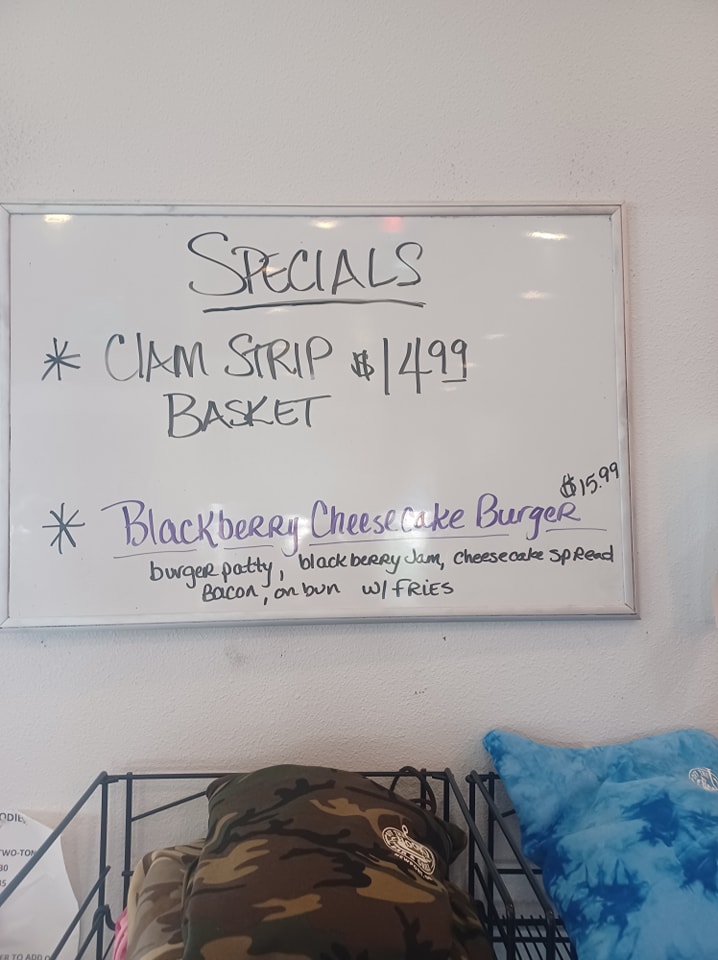 SPECIALS
* CLAM STRIP $14.99
BASKET
$15.99
* Blackberry Cheesecake Burger
burger patty, blackberry Jam, cheesecake spread
Bacon, on bun w/ FRIES
ODIE
TWO-TON